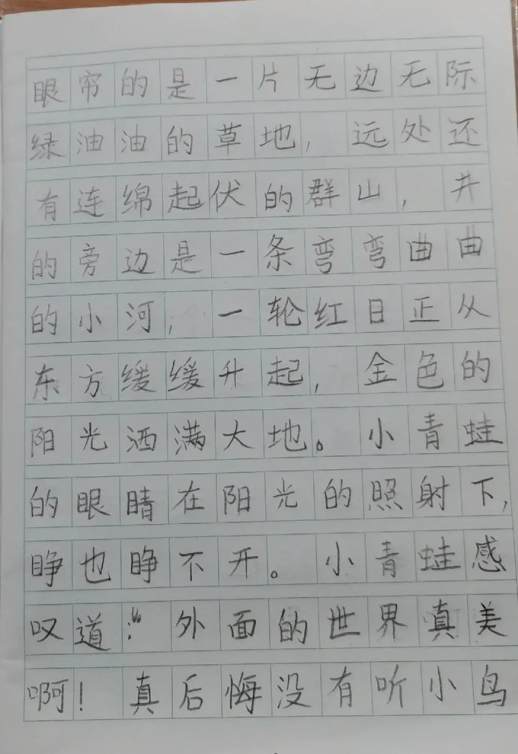 眼帘的是一片无边无际
绿油油的草地，远处还
有连绵起伏的群山，井
的旁边是一条弯弯曲曲
的小河，一轮红日正从
东方缓缓升起，金色的
阳光洒满大地。小青蛙
的眼睛在阳光的照射下，
睁也睁不开。小青蛙感
叹道：“外面的世界真美
啊！真后悔没有听小鸟